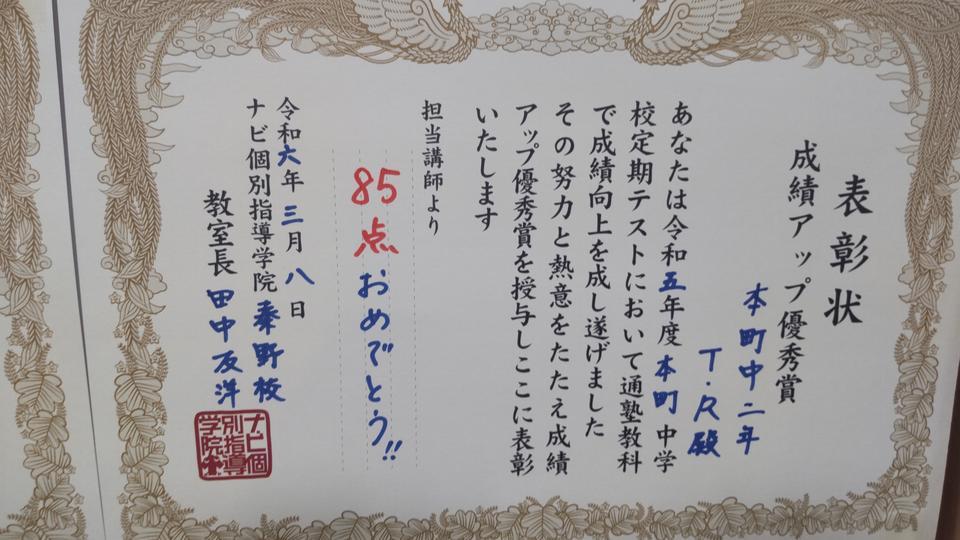 表彰状
成績アップ優秀賞
本町中二年
T.R殿
あなたは令和五年度本町中学
校定期テストにおいて通塾教科
で成績向上を成し遂げました
その努力と熱意をたたえ成績
アップ優秀賞を授与しここに表彰
いたします
担当講師より
85点おめでとう!!
令和六年三月八日
ナビ個別指導学院秦野校
教室長田中友洋
ナビ個
別指導
学院